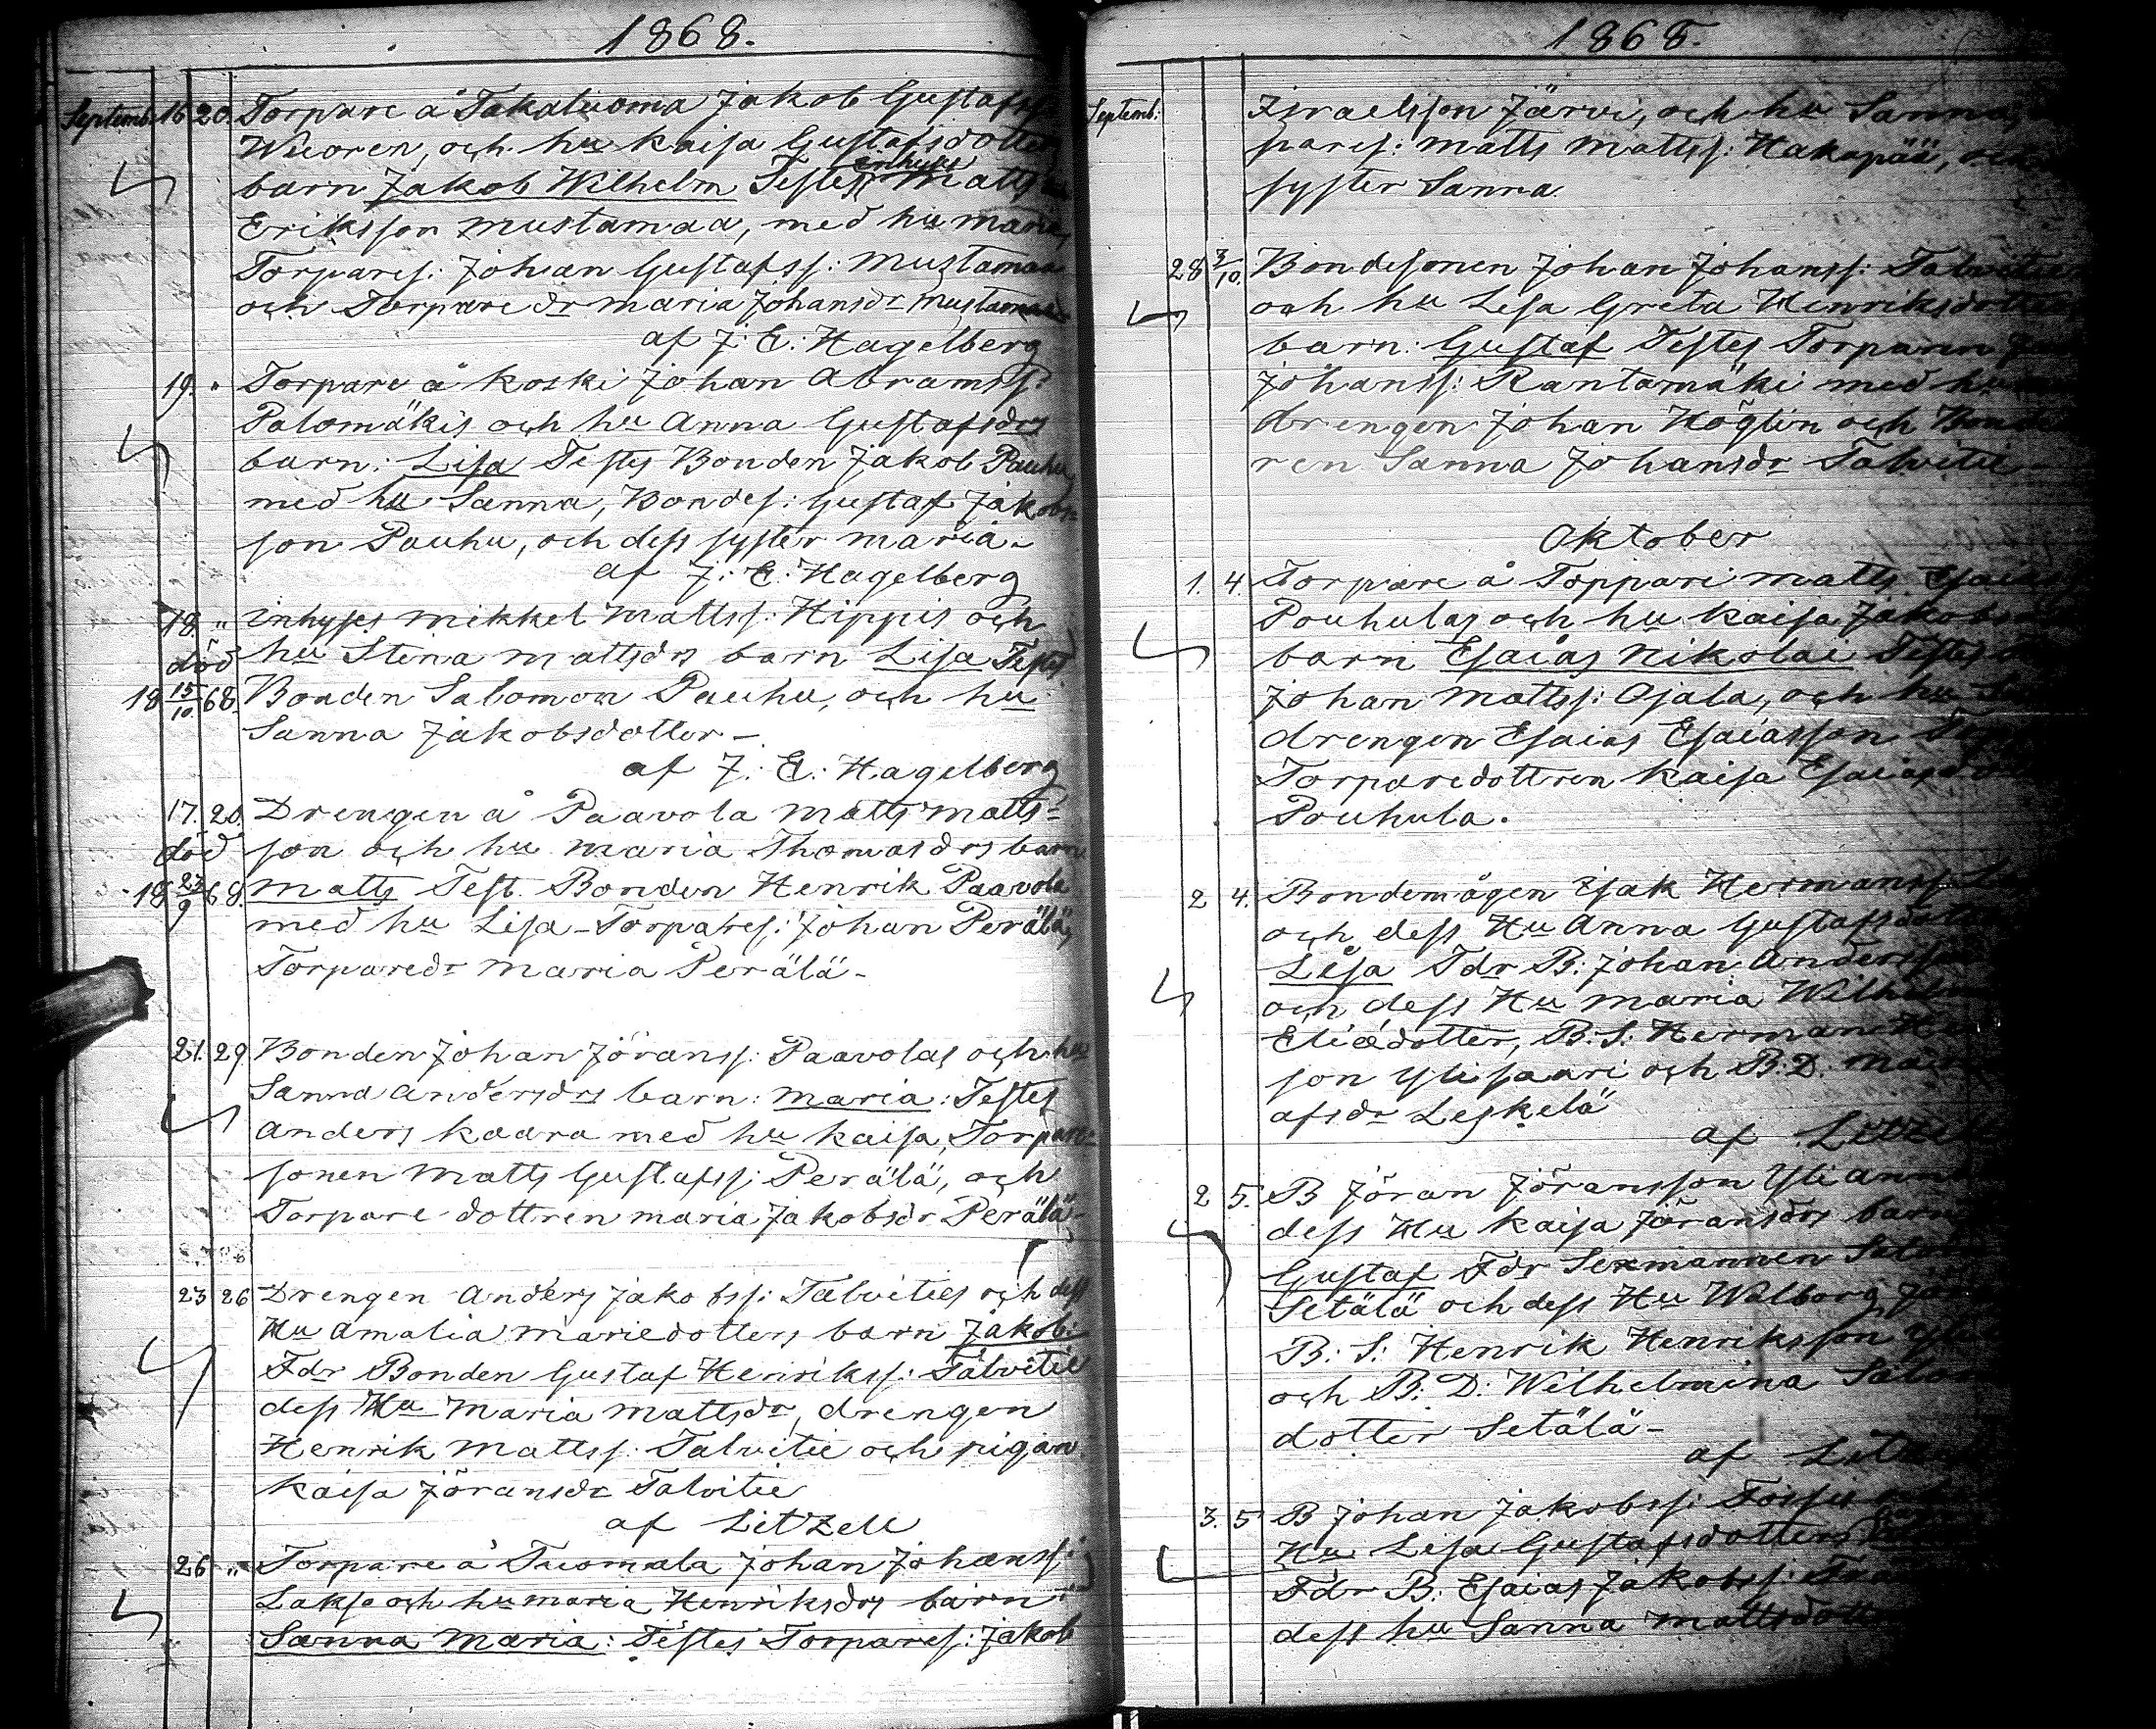 1868.
Septemb. 16 20. Torpare å Takaluoma Jakob Gustafss
Wuoren, och hu Kaisa Gustafsdotters
barn Jakob Wilhelm Testes Matts
Eriksson Mustamaa, med hu Maria,
Torpares: Johan Gustafss: Mustamaa
och Torparedr Maria Johansdr Mustamaa
af J: E: Hagelberg
19. " Torpare å Koski Johan Abramss:
Palomäkis och hu Anna Gustafsdrs
barn: Lisa Testes Bonden Jakob Pauhu
med hu Sanna, Bondes: Gustaf Jakobs-
son Pauhu, och dess syster Maria-
af J: E: Hagelberg
18. " inhyses Mikkel Mattss: Hippis och
död hu Stina Mattsdrs barn Lisa Testes
18 15/10 68. Bonden Salomon Pauhu, och hu
Sanna Jakobsdotter-
af J: E: Hagelberg
17. 20. Drengen å Paavola Matts Matts-
död son och hu Maria Thomasdrs barn
18 27/9 68. Matts Test. Bonden Henrik Paavola
med hu Lisa- Torpares: Johan Perälä,
Torparedr Maria Perälä-
21. 29. Bonden Johan Jöranss: Paavolas och hu
Sanna Andersdrs barn: Maria: Testes
Anders Kaara med hu Kaisa, Torpare-
sonen Matts Gustafss: Perälä, och
Torpare dottren Maria Jakobsdr Perälä-
23 26 Drengen Anders Jakobss: Talvities och dess
Hu Amalia Mariedotters barn Jakob:
Fdr Bonden Gustaf Henrikss: Talvitie
dess Hu Maria Mattsdr, drengen
Henrik Mattss: Talvitie och pigan
Kaisa Jöransdr Talvitie
af Litzell
26 " Torpare å Tuomala Johan Johanss:
Lakso och hu Maria Henriksdrs barn
Sanna Maria: Testes Torpares: Jakob
1868.
Septemb: Israelsson Järvi, och hu Sanna,
pares: Matts Mattss: Hakapää,
syster Sanna.
28 3/10. Bondesonen Johan Johanss: Talvitie
och hu Lisa Greta Henriksdotters
barn: Gustaf Testes Torparen
Johanss: Rantamäki med hu
drengen Johan Höglin och Bonde
ren Sanna Johansdr Talvitie-
Oktober
1. 4. Torpare å Toppari Matts Esaias
Pouhulas och hu Kaisa Jakobs
barn Esaias Nikolai Testes
Johan Mattss: Ojala, och hu
drengen Esaias Esaiasson
Torparedottren Kaisa Esaiasdr
Pouhula.
2 4. Bondemågen Isak Hermanss
och dess Hu Anna Gustafsdotters
Lisa Fdr B: Johan Andersson
och dess Hu Maria Wilhelm
Eliædotter, B. S: Herman
son Ylisaari och B: D: Maria
afsdr Leskelä
af Litzell
2 5. B Jöran Jöransson Yli
dess Hu Kaisa Jöransdrs barn
Gustaf Fdr Sexmannen Salom
Setälä och dess Hu Walborg
B: S: Henrik Henriksson
och B: D: Wilhelmina Salom
dotter Setälä-
af Litzell
3. 5 B Johan Jakobss:
Hu Lisa Gustafsdotters
Fdr B: Esaias Jakobss:
dess hu Sanna Mattsdotter